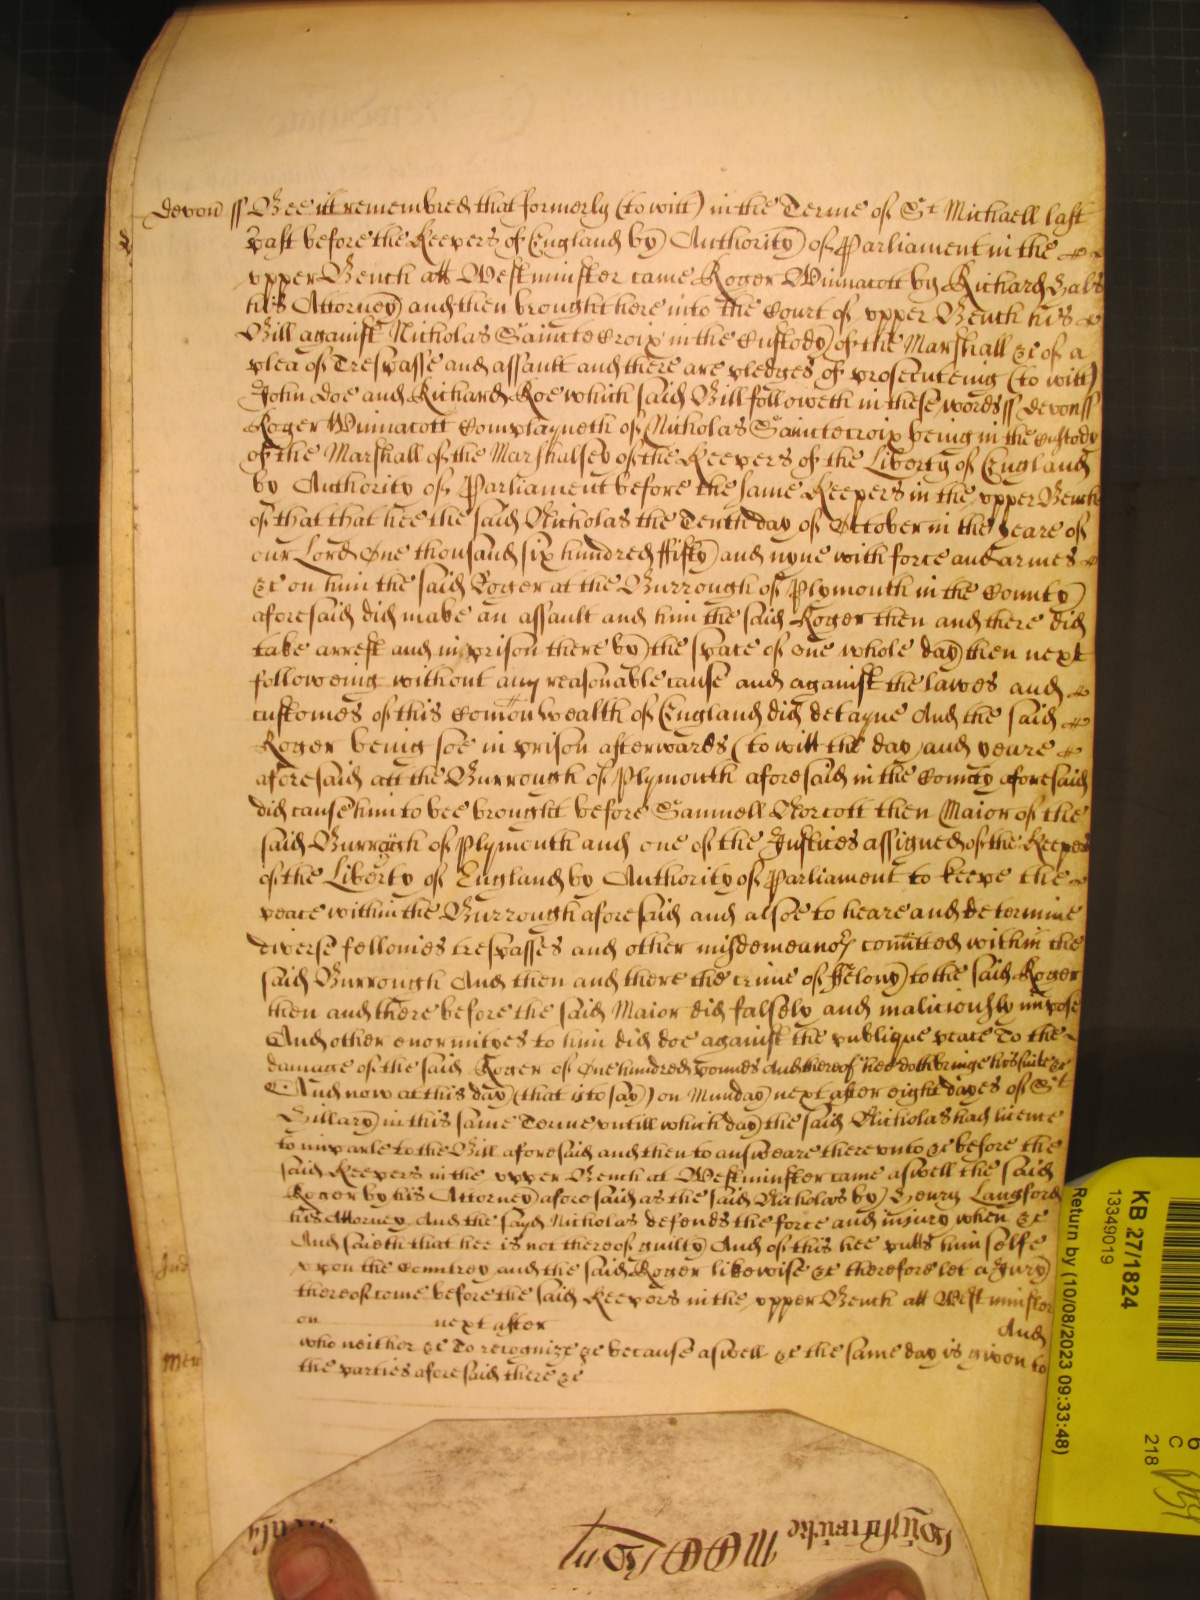 Devon ss Bee itt remembred that formerly (to witt) in the Terme of St Michaell last
past before the Keepers of England by Authority of Parliament in the
upper Bench att Westminster came Roger Winnacott by Richard
his Attorney and then brought here into the Court of upper Bench his
Bill against Nicholas Sainctecroix in the Custody of the Marshall &c of a
plea of Trespasse and assault and there are pledges of prosecuteing (to witt)
John Doe and Richard Roe which said Bill followeth in these words ss Devon ss
Roger Winnacott Complayneth of Nicholas Sainctecroix being in the Custody
of the Marshall of the Marshalsey of the Keepers of the Liberty of England
by Authority of Parliament before the same Keepers in the upper Bench
of that that hee the said Nicholas the Tenth day of October in the yeare of
our Lord One thousand six hundred ffifty and nyne with force and armes
&c on him the said Roger at the Burrough of Plymouth in the County
aforesaid did make an assault and him the said Roger then and there did
take arrest and imprison there by the space of one whole day then next
followeing without any reasonable cause and against the lawes and
customes of this Comon Wealth of England did detayne And the said
Roger being soe in prison afterwards (to witt the day and yeare
aforesaid att the Burrough of Plymouth aforesaid in the County aforesaid
did cause him to bee brought before Samuell Norcott then Maior of the
said Burrough of Plymouth and one of the Justices assigned of the Keepers
of the Liberty of England by Authority of Parliament to keepe the
peace within the Burrough aforesaid and alsoe to heare and determine
diverse fellonies trespasses and other misdemeanors comitted within the
said Burrough And then and there the crime of ffelony to the said Roger
then and there before the said Maior did falsely and maliciously impose
And other enormityes to him did doe against the publique peace To the
damage of the said Roger of One hundred pounds And thereof hee doth bringe his suite &c
And now at this day (that is to say) on Munday next after eight dayes of St
Hillary in this same Terme untill which day the said Nicholas had licence
to imparle to the Bill aforesaid and then to answeare thereunto &c before the
said Keepers in the upper Bench at Westminster came aswell the said
Roger by his Attorney aforesaid as the said Nicholas by Henry Langford
his Attorney And the sayd Nicholas defends the force and injury when &c
And saieth that hee is not thereof guilty And of this hee putts himselfe
upon the Countrey and the said Roger likewise &c therefore let a Jury
thereof come before the said Keepers in the upper Bench att Westminster
on next after And
who neither &c To recognize &c because aswell &c the same day is given to
the parties aforesaid there &c
KB 27/1824
13349019
Return by (10/08/2023 09:33:48)
6
C
218